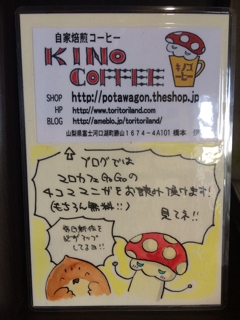 自家焙煎コーヒー
KINO
COFFEE
キノコーヒー
SHOP http://potawagon.theshop.jp
HP http://www.toritoriland.com
BLOG http://ameblo.jp/toritoriland/
山梨県富士河口湖町勝山1674-A101 橋本 伊
ブログでは
スロカフェGoGoの
4コママンガをお読み頂けます!
(もちろん無料!!)
見てネ!!
毎日新作を
必ずアップ
してるヨ!!